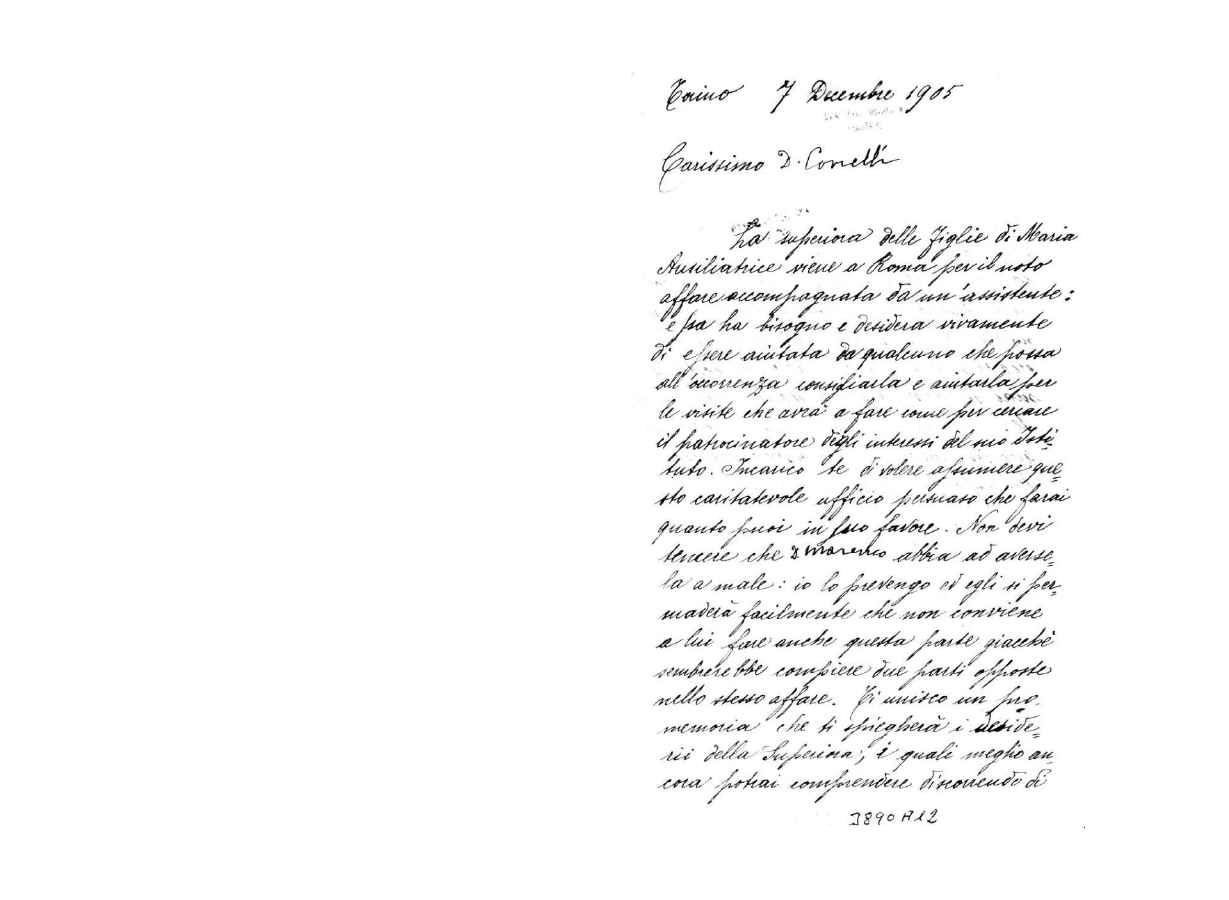 Torino 7 Decembre 1905
Carissimo D. Conelli
La superiora delle Figlie di Maria
Ausiliatrice viene a Roma per il noto
affare accompagnata da un'assistente:
essa ha bisogno e desidera vivamente
di essere aiutata da qualcuno che possa
all'occorrenza consigliarla e aiutarla per
le visite che avrà a fare come per cercare
il patrocinatore degli interessi del suo Isti-
tuto. Incarico te di volere assumere que-
sto caritatevole ufficio persuaso che farai
quanto puoi in suo favore. Non devi
temere che D. Marenco abbia ad averse-
la a male: io lo prevengo ed egli si per-
suaderà facilmente che non conviene
a lui fare anche questa parte giacchè
sembrerebbe compiere due parti opposte
nello stesso affare. Ti unisco un pro-
memoria che ti spiegherà i deside-
rii della Superiora, i quali meglio an-
cora potrai comprendere discorrendo di
3890 A12